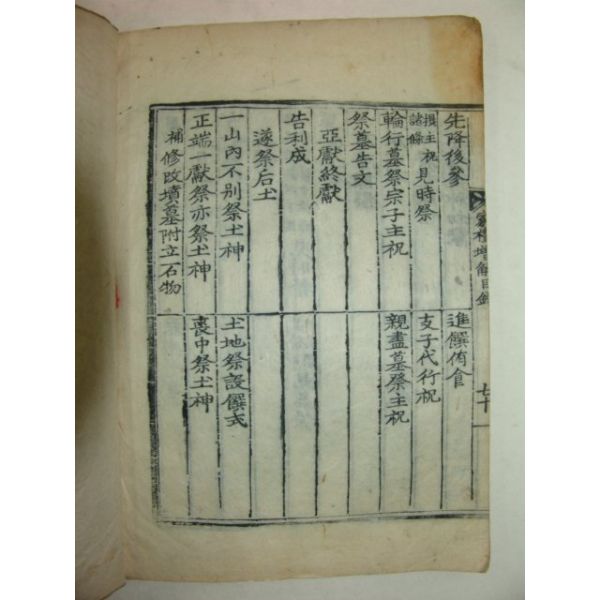 家禮增解目錄
先降後參　進饌侑食
攝主祝諸條見時祭　支子代行祝
輪行墓祭宗子主祝　親盡墓祭主祝
祭墓告文
亞獻終獻
告利成
遂祭后土
一山內不別祭土神　土地祭設饌式
正端一獻祭亦祭土神　喪中祭土神
補修改墳墓附立石物